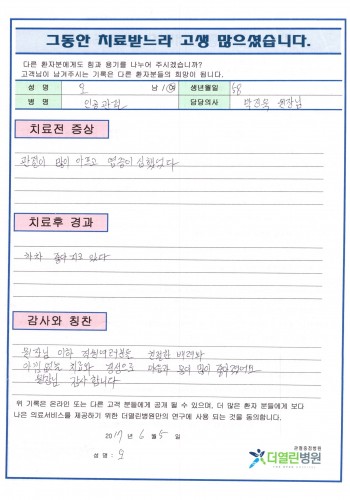 그동안 치료받느라 고생 많으셨습니다.
다른 환자분에게도 힘과 용기를 나누어 주시겠습니까?
고객님이 남겨주시는 기록은 다른 환자분들의 희망이 됩니다.
성 명 오 남 / 여 생년월일 58
병 명 인공관절 담당의사 박진욱 원장님
치료전 증상
관절이 많이 아프고 염증이 심했었다
치료후 경과
차차 좋아 지고 있다
감사와 칭찬
원장님 이하 직원여러분들 친절한 배려와
아낌없는 치료와 정성으로 마음과 몸이 많이 좋아졌어요
원장님 감사합니다
위 기록은 온라인 또는 다른 고객 분들에게 공개 될 수 있으며, 더 많은 환자 분들에게 보다
나은 의료서비스를 제공하기 위한 더열린병원만의 연구에 사용 되는 것을 동의합니다.
2017 년 6 월 5 일
성 명 : 오
관절중점병원
더열린병원